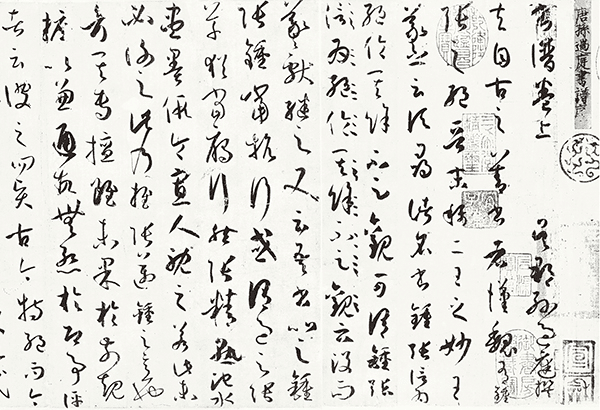 唐孫過庭書譜序
書譜卷上 吳郡孫過庭撰
夫自古之善書者漢魏有鍾
張之絕晉末稱二王之妙王
羲之云頃尋諸名書鍾張信為
絕倫其餘不足觀可謂鍾張
信為絕倫其餘不足觀云沒而
羲獻繼之又云吾書比之鍾
張鍾當抗行或謂過之張
草猶當雁行然張精熟池水
盡墨假令寡人耽之若此未
必謝之此乃推張邁鍾之意也
考其專擅雖未果於前規
摭以兼通故無慚於即事評
者云彼之四賢古今特絕而今